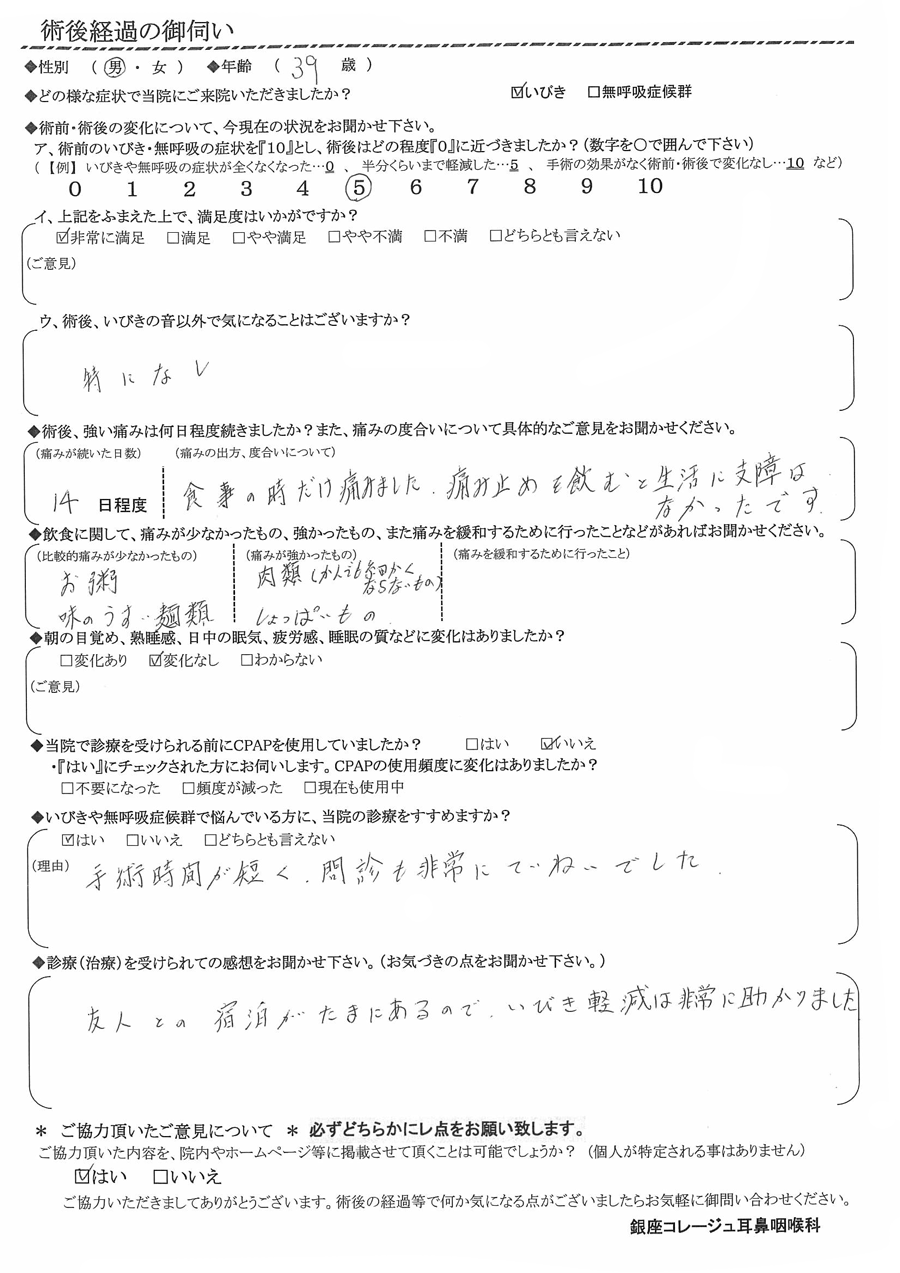 術後経過の御伺い
◆性別 （ 男 ・ 女 ） ◆年齢 （ 39 歳 ）
◆どの様な症状で当院にご来院いただきましたか？ ☑いびき □無呼吸症候群
◆術前・術後の変化について、今現在の状況をお聞かせ下さい。
ア、術前のいびき・無呼吸の症状を『10』とし、術後はどの程度『0』に近づきましたか？（数字を○で囲んで下さい）
（【例】 いびきや無呼吸の症状が全くなくなった…0 、 半分くらいまで軽減した…5 、 手術の効果がなく術前・術後で変化なし…10 など）
0 1 2 3 4 5 6 7 8 9 10
イ、上記をふまえた上で、満足度はいかがですか？
☑非常に満足 □満足 □やや満足 □やや不満 □不満 □どちらとも言えない
（ご意見）
ウ、術後、いびきの音以外で気になることはございますか？
特になし
◆術後、強い痛みは何日程度続きましたか？また、痛みの度合いについて具体的なご意見をお聞かせください。
（痛みが続いた日数） （痛みの出方、度合いについて）
14 日程度 食事の時だけ痛みました。痛み止めを飲むと生活に支障は
なかったです。
◆飲食に関して、痛みが少なかったもの、強かったもの、また痛みを緩和するために行ったことなどがあればお聞かせください。
（比較的痛みが少なかったもの） （痛みが強かったもの） （痛みを緩和するために行ったこと）
お粥 肉類（かんでも細かく
ならないもの）
味のうすい麺類 しょっぱいもの
◆朝の目覚め、熟睡感、日中の眠気、疲労感、睡眠の質などに変化はありましたか？
□変化あり ☑変化なし □わからない
（ご意見）
◆当院で診療を受けられる前にCPAPを使用していましたか？ □はい ☑いいえ
・『はい』にチェックされた方にお伺いします。CPAPの使用頻度に変化はありましたか？
□不要になった □頻度が減った □現在も使用中
◆いびきや無呼吸症候群で悩んでいる方に、当院の診療をすすめますか？
☑はい □いいえ □どちらとも言えない
（理由） 手術時間が短く、問診も非常にていねいでした。
◆診療（治療）を受けられての感想をお聞かせ下さい。（お気づきの点をお聞かせ下さい。）
友人との宿泊がたまにあるので、いびき軽減は非常に助かりました
＊ ご協力頂いたご意見について ＊ 必ずどちらかにレ点をお願い致します。
ご協力頂いた内容を、院内やホームページ等に掲載させて頂くことは可能でしょうか？ （個人が特定される事はありません）
☑はい □いいえ
ご協力いただきましてありがとうございます。術後の経過等で何か気になる点がございましたらお気軽に御問い合わせください。
銀座コレージュ耳鼻咽喉科